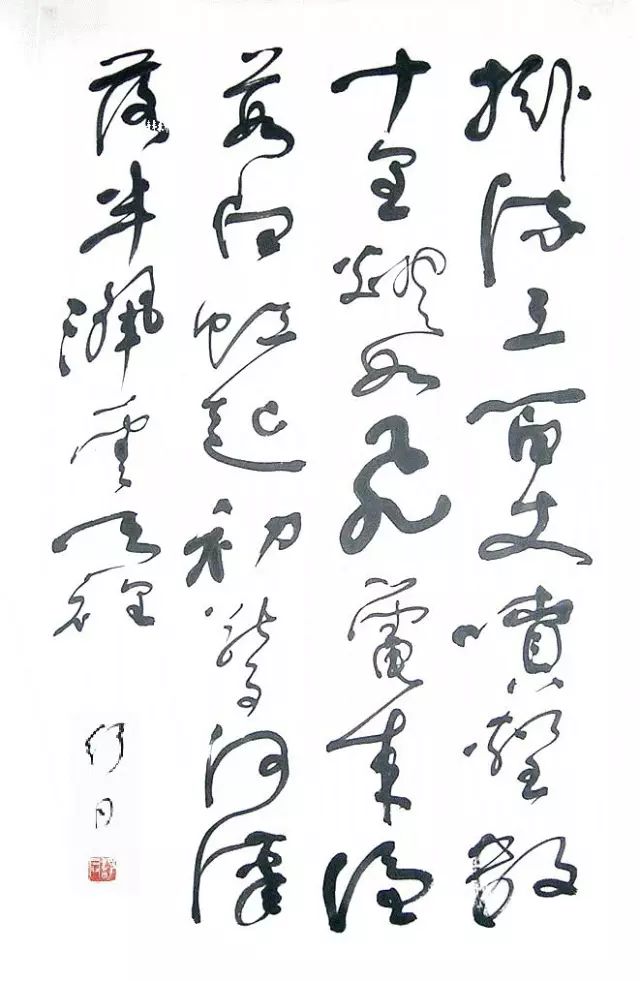 掛流三百丈噴壑數
十里如飛電來隱
若白虹起初驚河漢
落半灑雲天裡